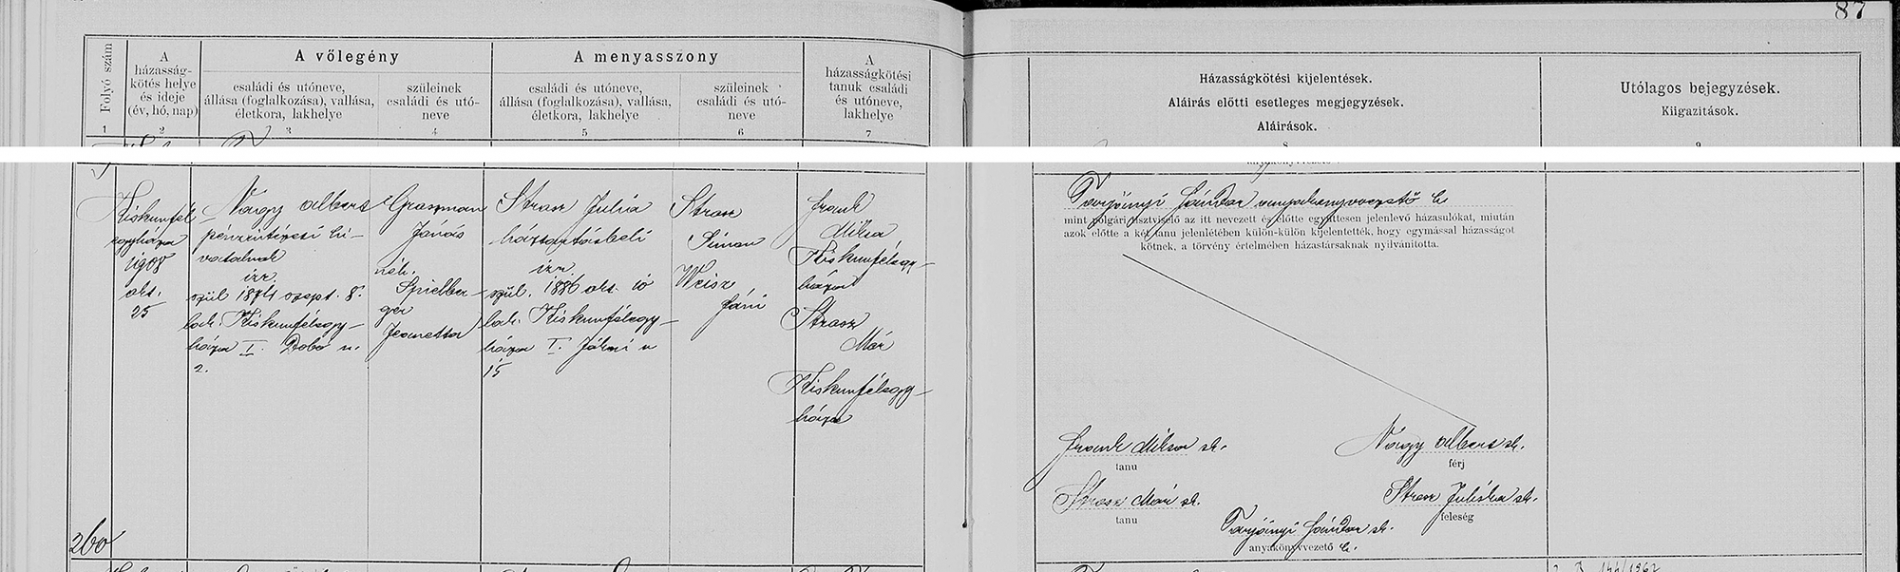 87
Folyó szám
A
házasság-
kötés helye
és ideje
(év, hó, nap)
A vőlegény
családi és utóneve,
állása (foglalkozása), vallása,
életkora, lakhelye
szüleinek
családi és utó-
neve
A menyasszony
családi és utóneve,
állása (foglalkozása), vallása,
életkora, lakhelye
szüleinek
családi és utó-
neve
A
házasságkötési
tanuk családi
és utóneve,
lakhelye
Házasságkötési kijelentések.
Aláírás előtti esetleges megjegyzések.
Aláírások.
Utólagos bejegyzések.
Kiigazítások.
1 2 3 4 5 6 7
260
Kiskunfél
egyháza
1908
okt.
25
Nagy Albert
pénzintézeti hi-
vatalnok
izr.
szül 1874 szept. 8.
lak. Kiskunfélegy-
háza I. Dobó u.
2.
Grossman
Jónás
néh.
Spielber-
ger
Jeanetta
Strasz Julia
háztartásbeli
izr.
szül. 1886 okt. 10
lak. Kiskunfélegy-
háza I. Jókai u
15
Strasz
Simon
Weisz
Fáni
Frank
Miksa
Kiskunfélegy-
háza
Strasz
Mór
Kiskunfélegy-
háza
Tarjányi Sándor anyakönyvvezető h.
mint polgári tisztviselő az itt nevezett és előtte együttesen jelenlevő házasulókat, miután
azok előtte a két tanu jelenlétében külön-külön kijelentették, hogy egymással házasságot
kötnek, a törvény értelmében házastársaknak nyilvánította.
Frank Miksa sk.
tanu
Nagy Albert sk.
férj
Strasz Mór sk.
tanu
Strasz Juliska sk.
feleség
Tarjányi Sándor sk.
anyakönyvvezető h.